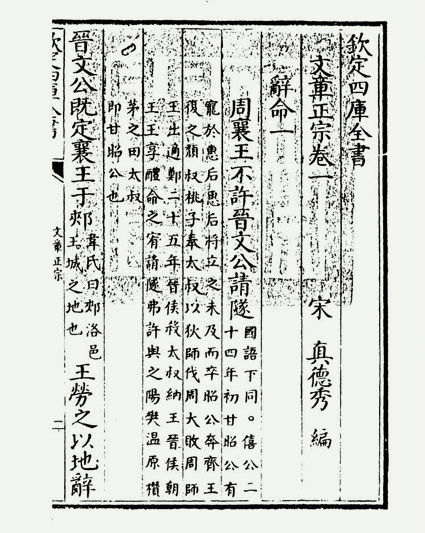 欽定四庫全書
文章正宗卷一 宋 真德秀 編
辭命一
周襄王不許晉文公請隧 國語下同。僖公二
十四年初甘昭公有
寵於惠后惠后将立之未及而卒昭公奔齊王
復之頽叔桃子奉太叔以狄師伐周大敗周師
王出適鄭二十五年晉侯殺太叔納王晉侯朝
王王享醴命之宥請隧弗許與之陽樊温原欑
茅之田太叔
即甘昭公也
晉文公既定襄王于郟 韋氏曰郟洛邑
王城之地也 王勞之以地辭
文章正宗